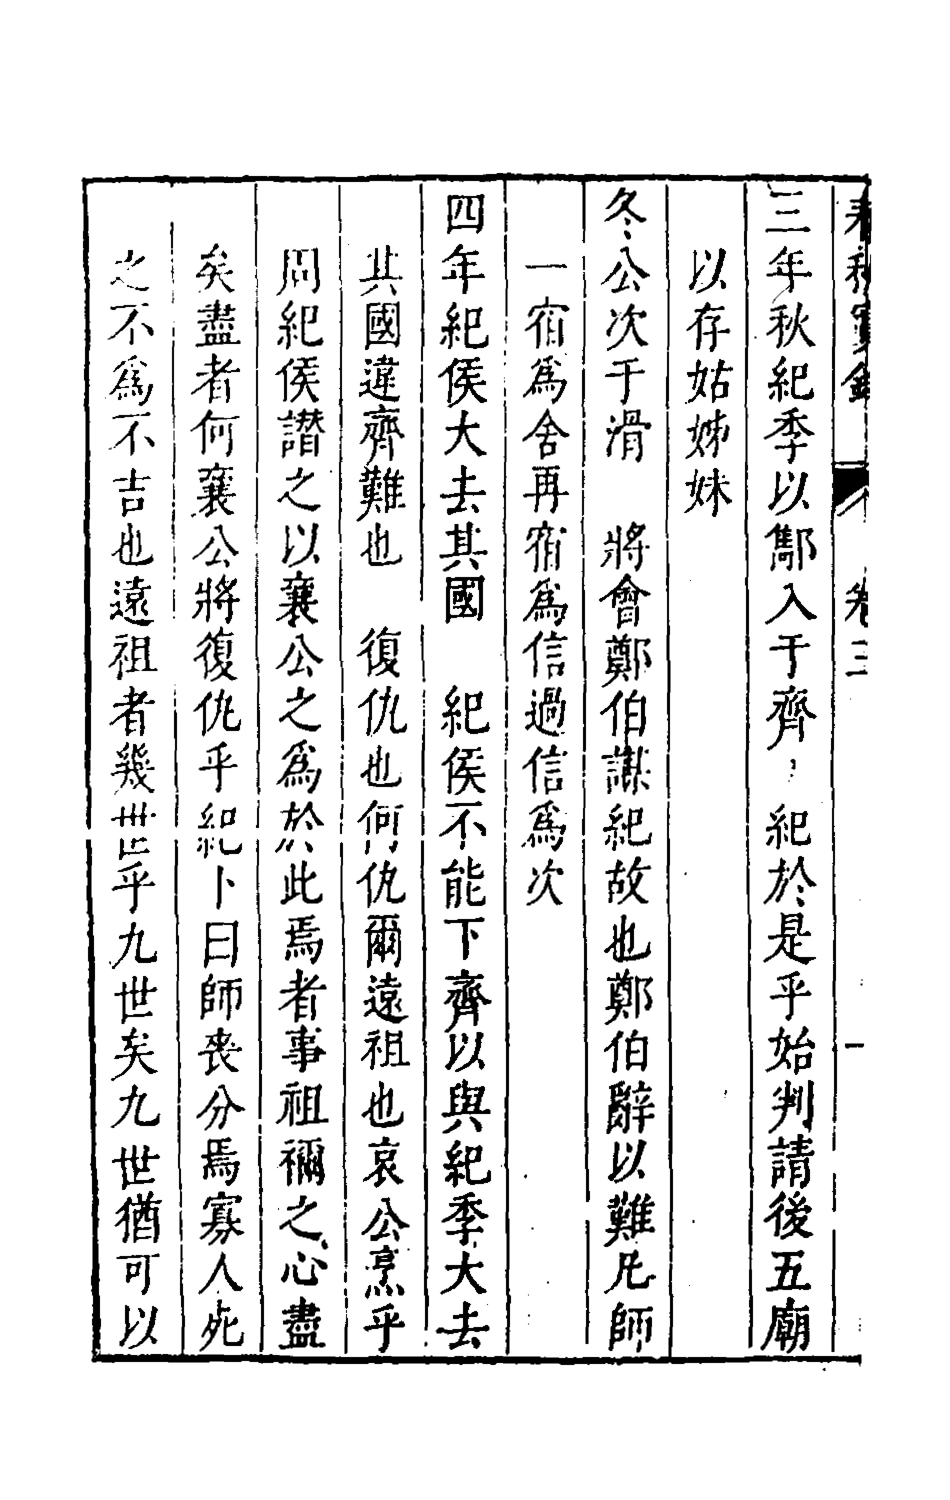 春秋實錄 卷三 一
三年秋紀季以酅入于齊 紀於是乎始判請後五廟
以存姑姊妹
冬公次于滑 將會鄭伯謀紀故也鄭伯辭以難凡師
一宿爲舍再宿爲信過信爲次
四年紀侯大去其國 紀侯不能下齊以與紀季大去
其國違齊難也 復仇也何仇爾遠祖也哀公烹乎
周紀侯譖之以襄公之爲於此焉者事祖禰之心盡
矣盡者何襄公將復仇乎紀卜曰師喪分焉寡人死
之不爲不吉也遠祖者幾世乎九世矣九世猶可以